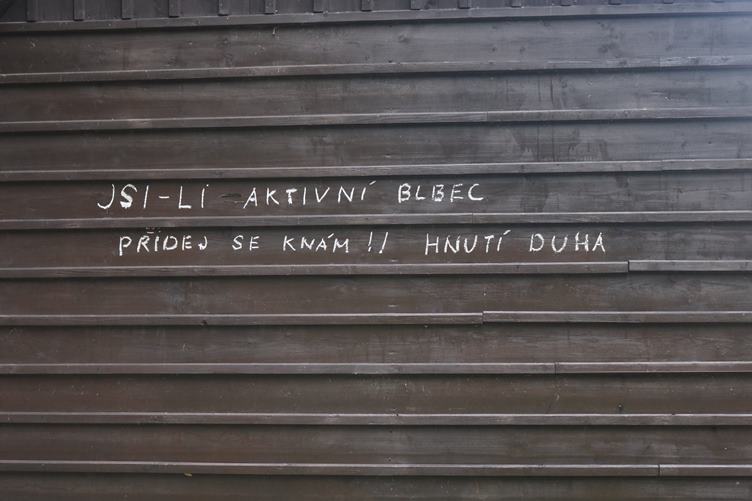 JSI-LI AKTIVNÍ BLBEC
PŘIDEJ SE KNÁM !! HNUTÍ DUHA